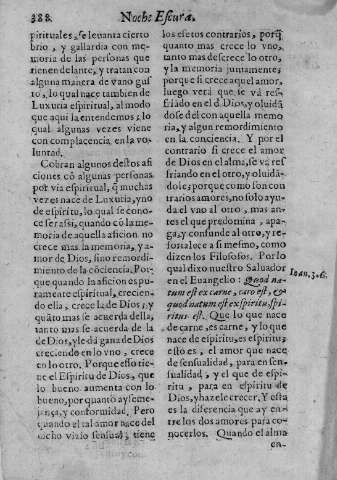 388. Noche Escura.
pirituales, se levanta cierto
brio, y gallardia con me-
moria de las personas que
tienen delante, y tratan con
alguna manera de vano gus
to, lo qual nace tambien de
Luxuria espiritual, al modo
que aqui la entendemos; lo
qual algunas vezes viene
con complacencia, en la vo-
luntad.
Cobran algunos destos afi
ciones cõ algunas personas
por via espiritual, q̃ muchas
vezes nace de Luxuria, y no
de espiritu, lo qual se cono-
ce ser assi, quando cõ la me-
moria de aquella aficion no
crece mas la memoria, y a-
mor de Dios, sino remordi-
miento de la cõciencia. Por-
que quando la aficion es pu-
ramente espiritual, creciendo
ella, crece la de Dios; y
quãto mas se acuerda della,
tanto mas se acuerda de la
de Dios, y le dá gana de Dios
creciendo en lo vno, crece
en lo otro. Porque esso tie-
ne el Espiritu de Dios, que
lo bueno aumenta con lo
bueno, por quanto ay seme-
jança, y conformidad. Pero
quando el tal amor nace del
dicho vicio sensual, tiene
los efetos contrarios, porq̃
quanto mas crece lo vno,
tanto mas descrece lo otro,
y la memoria juntamente;
porque si crece aquel amor,
luego verá que se vá res-
friado en el d̃ Dios, y oluidã
dose del con aquella memo-
ria, y algun remordimiento
en la conciencia. Y por el
contrario si crece el amor
de Dios en el alma, se vá res
friando en el otro, y oluidã-
dole; porque como son con
trarios amores, no solo ayu-
da el vno al otro, mas an-
tes el que predomina, apa-
ga, y confunde al otro, y re-
fortalece a si mesmo, como
dizen los Filosofos. Por lo
qual dixo nuestro Saluador
en el Euangelio: Quod na-
tum est ex carne, caro est, &
quod natum est ex spiritu, spi-
ritus est. Que lo que nace
de carne, es carne, y lo que
nace de espiritu, es espiritu;
esto es, el amor que nace
de sensualidad, para en sen-
sualidad, y el que de espi-
ritu, para en espiritu de
Dios, y haze le crecer. Y esta
es la diferencia que ay en-
tre los dos amores para co-
nocerlos. Quando el alma
en-
Ioan. 3. 6.